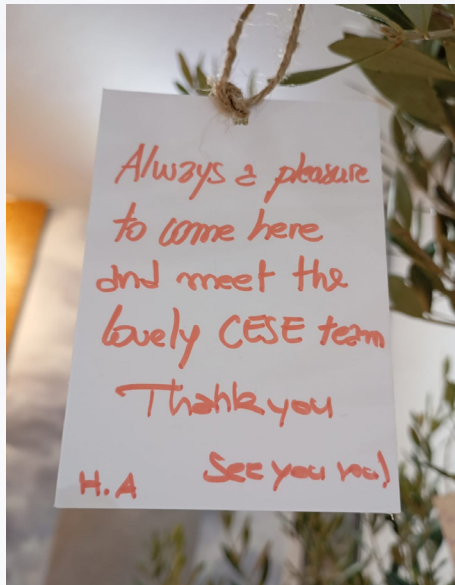 Always a pleasure
to come here
and meet the
lovely CESE team
Thank you
See you
H.A